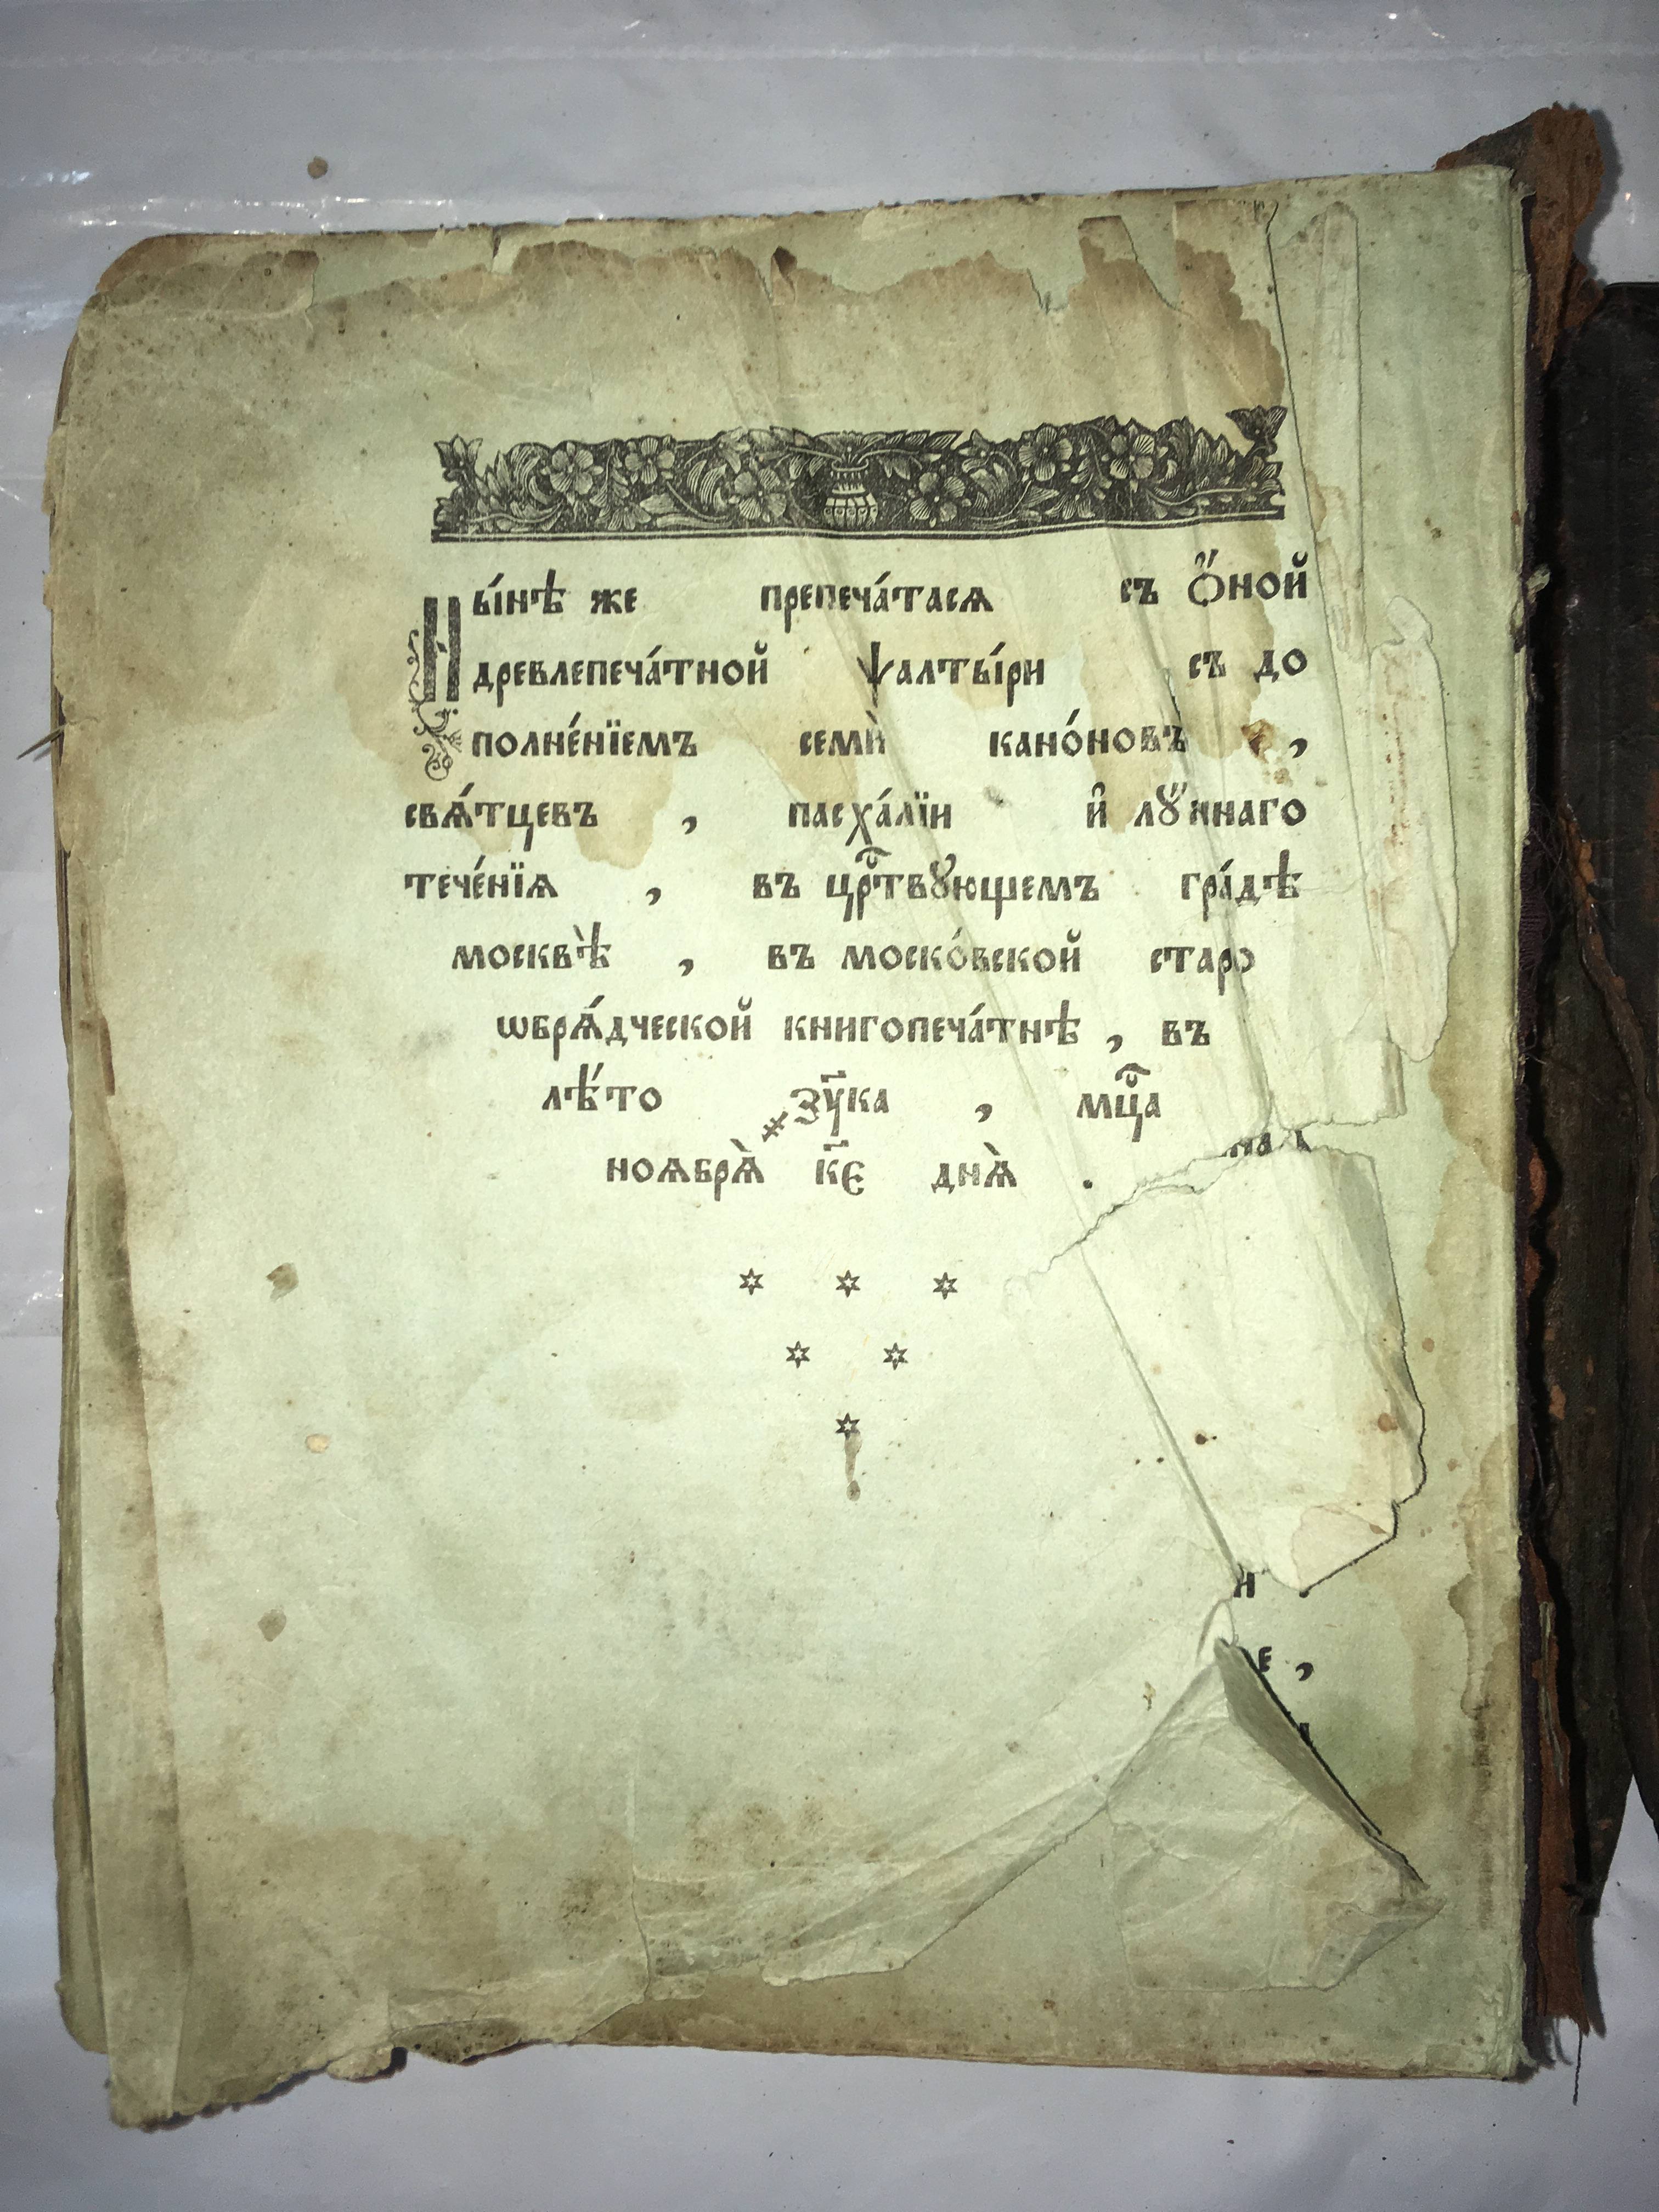 Ны́нѣ же препеча́тасѧ съ Ѻ҆́ной
древлепеча́тной ѱалты́ри съ до
полне́нїемъ семѝ кано́новъ ,
свѧ́тцевъ , пасха́лїи и҆ лꙋ́ннаго
тече́нїѧ , въ цр҇твꙋющемъ гра́дѣ
москвѣ̀ , въ моско́вской старо
ѡбрѧ́дческой книгопеча́тнѣ , въ
лѣ́то ҂зу҃ка , мц҇а
ноѧбрѧ̀ к҃є днѧ̀ .